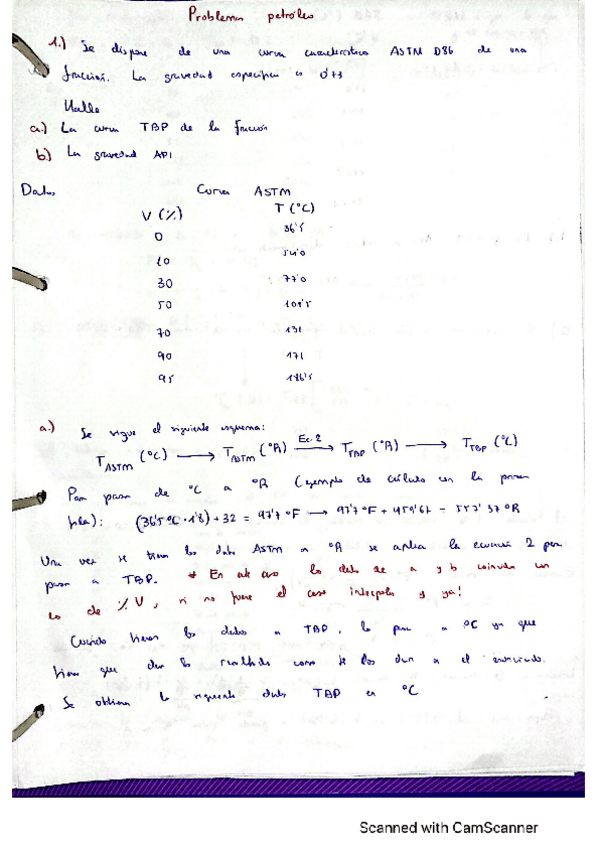 Problemas petróleo
1.) Se dispone de una curva característica ASTM D86 de una
fracción. La gravedad específica es 0'73
Halle
a.) La curva TBP de la fracción
b.) La gravedad API
Datos Curva ASTM
V (%) T (ºC)
0 36'5
10 54'0
30 77'0
50 108'5
70 131
90 171
95 186'5
a.) Se sigue el siguiente esquema:
T ASTM (ºC) → T ASTM (ºR) Ec. 2 → T TBP (ºR) → T TBP (ºC)
Para pasar de ºC a ºR (ejemplo de cálculo con la primera
fila): (36'5 ºC · 1'8) + 32 = 97'7 ºF → 97'7 ºF + 459'67 = 557'37 ºR
Una vez se tienen los datos ASTM en ºR se aplica la ecuación 2 para
pasar a TBP. * En este caso los datos de a y b coinciden con
los de % V, si no fuese el caso interpolas y ya!
Cuando tienes los datos a TBP, lo pasas a ºC ya que
tienes que dar los resultados como te los dan en el enunciado.
Se obtienen los siguientes datos TBP en ºC
Scanned with CamScanner